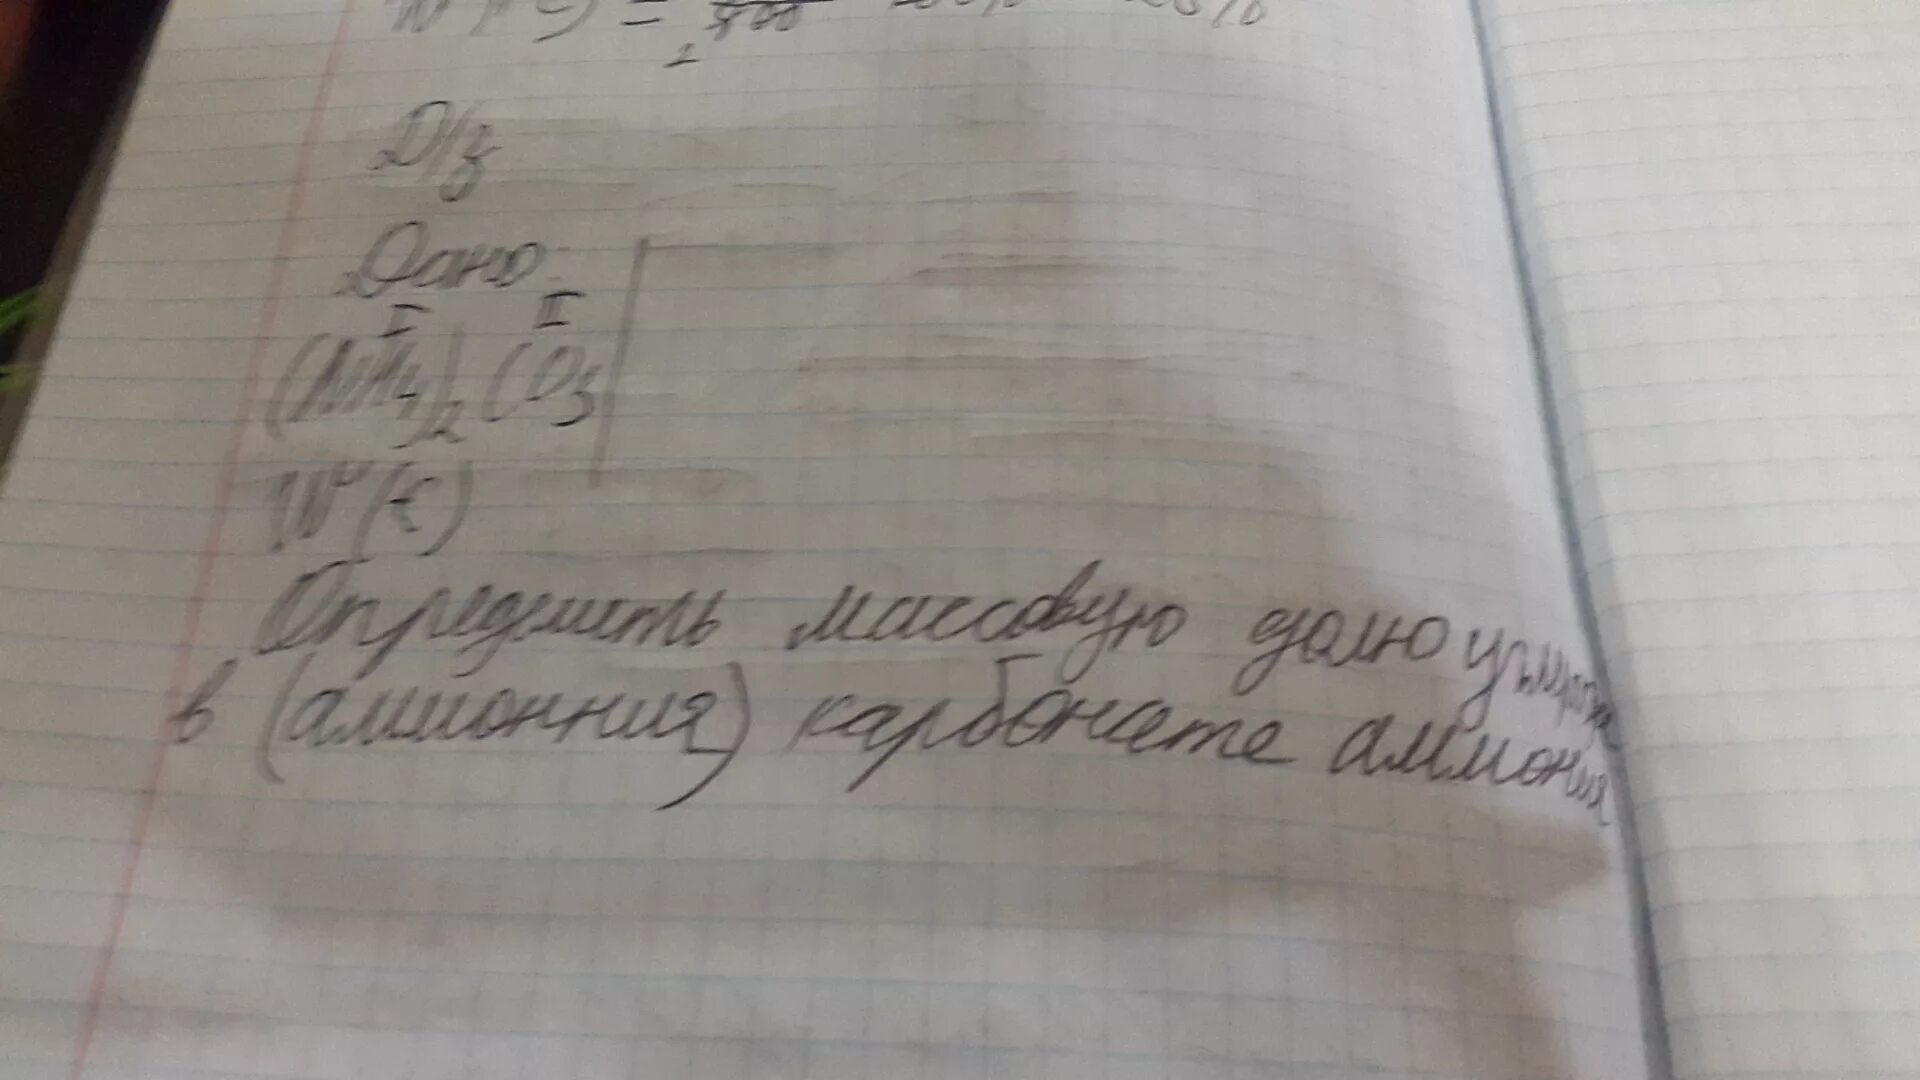 Д/з
Дано:
I II
(NH4)2 CO3
W (C)
Определить массовую долю углерода
в (аммионния) карбонате аммония